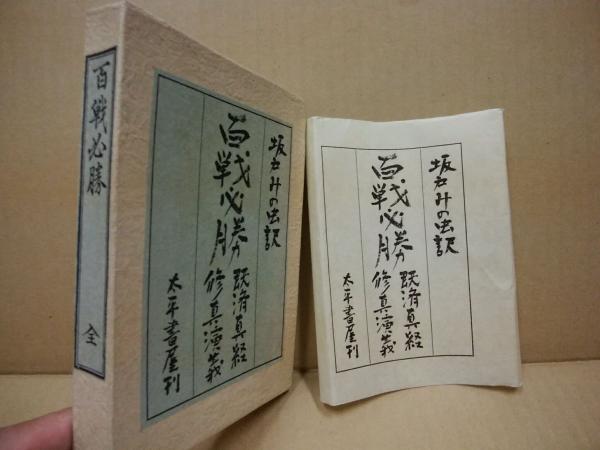 百戦必勝
全
坂戸みの虫訳
百戦必勝
既済真経
修真演義
太平書屋刊
坂戸みの虫訳
百戦必勝
既済真経
修真演義
太平書屋刊